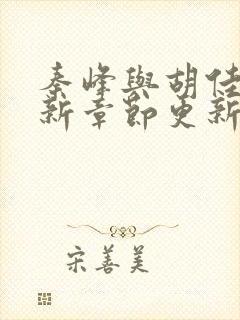 秦峰與胡佳
新章節更新
宋善美